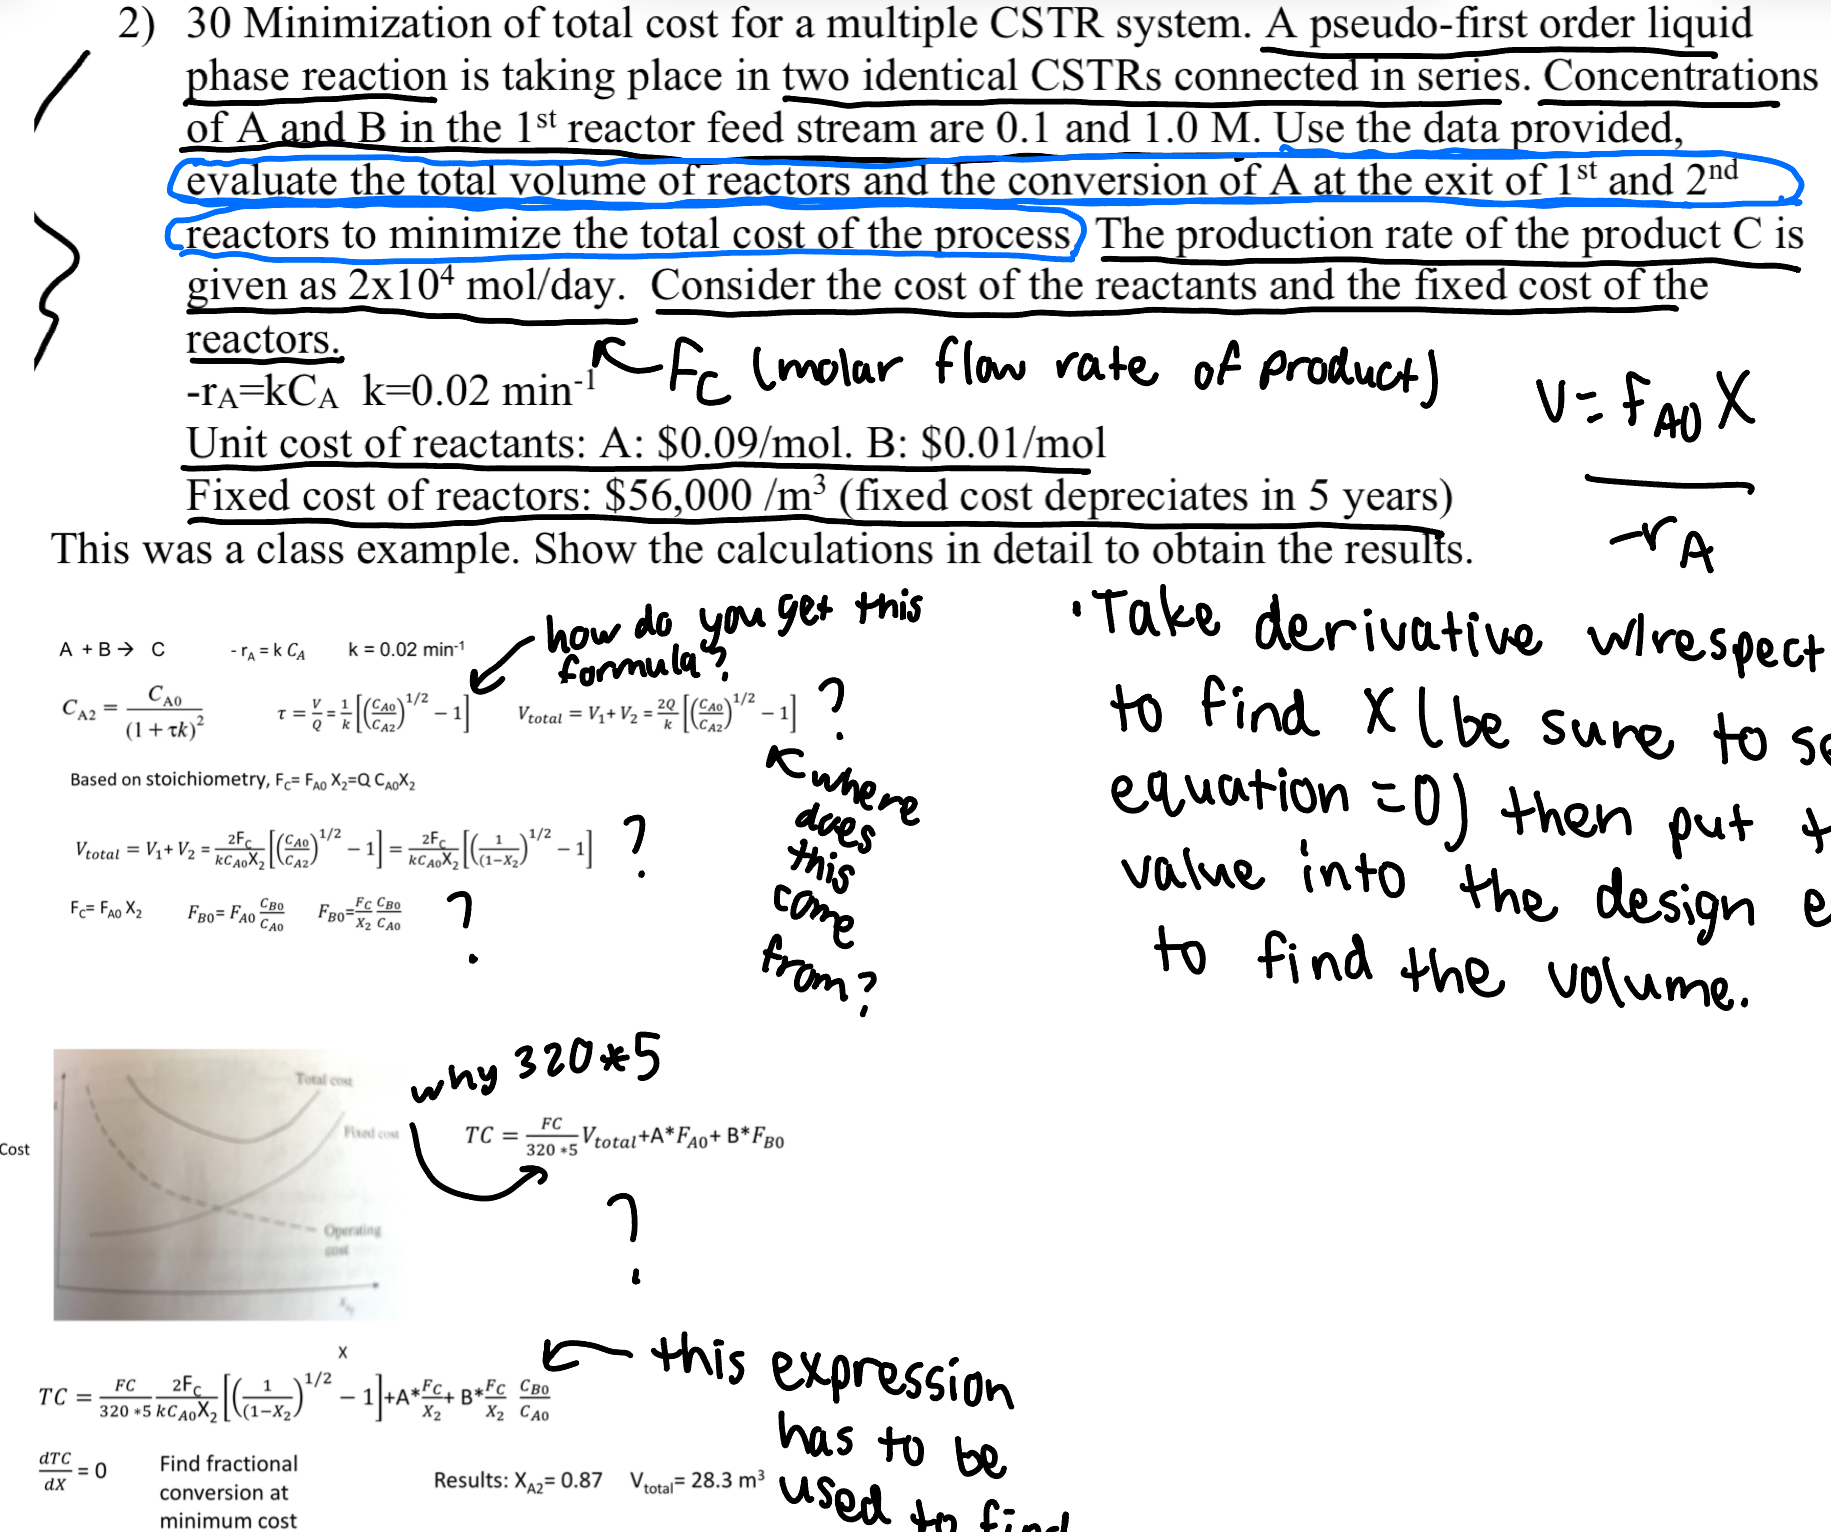 2) 30 Minimization of total cost for a multiple CSTR system. A pseudo-first order liquid
phase reaction is taking place in two identical CSTRs connected in series. Concentrations
of A and B in the 1st reactor feed stream are 0.1 and 1.0 M. Use the data provided,
evaluate the total volume of reactors and the conversion of A at the exit of 1st and 2nd
reactors to minimize the total cost of the process. The production rate of the product C is
given as 2x10⁴ mol/day. Consider the cost of the reactants and the fixed cost of the
reactors.
Fc (molar flow rate of product)
-rA=kCA k=0.02 min⁻¹
V= FA0 X
-rA
Unit cost of reactants: A: $0.09/mol. B: $0.01/mol
Fixed cost of reactors: $56,000 /m³ (fixed cost depreciates in 5 years)
This was a class example. Show the calculations in detail to obtain the results.
how do you get this
formula?
A + B → C - rA = k CA k = 0.02 min⁻¹
CA2 = CA0 / (1 + τk)² τ = V/Q = 1/k [(CA0/CA2)^1/2 − 1] Vtotal = V1+ V2 = 2Q/k [(CA0/CA2)^1/2 − 1] ?
where
does
this
come
from?
Based on stoichiometry, Fc= FA0 X2=Q CA0X2
Vtotal = V1+ V2 = 2Fc/kCA0X2 [(CA0/CA2)^1/2 − 1] = 2Fc/kCA0X2 [(1/(1−X2))^1/2 − 1] ?
Fc= FA0 X2 FB0= FA0 CB0/CA0 FB0= FC/X2 CB0/CA0 ?
• Take derivative w/respect
to find X (be sure to
equation =0) then put
value into the design
to find the volume.
why 320*5
Total cost
Fixed cost
Operating
cost
Cost
X
TC = FC/320 *5 Vtotal+A*FA0+ B*FB0
?
this expression
has to be
used to find
TC = FC/320 *5 2Fc/kCA0X2 [(1/(1−X2))^1/2 − 1]+A*FC/X2+ B*FC/X2 CB0/CA0
dTC/dX = 0 Find fractional
conversion at
minimum cost
Results: XA2= 0.87 Vtotal= 28.3 m³